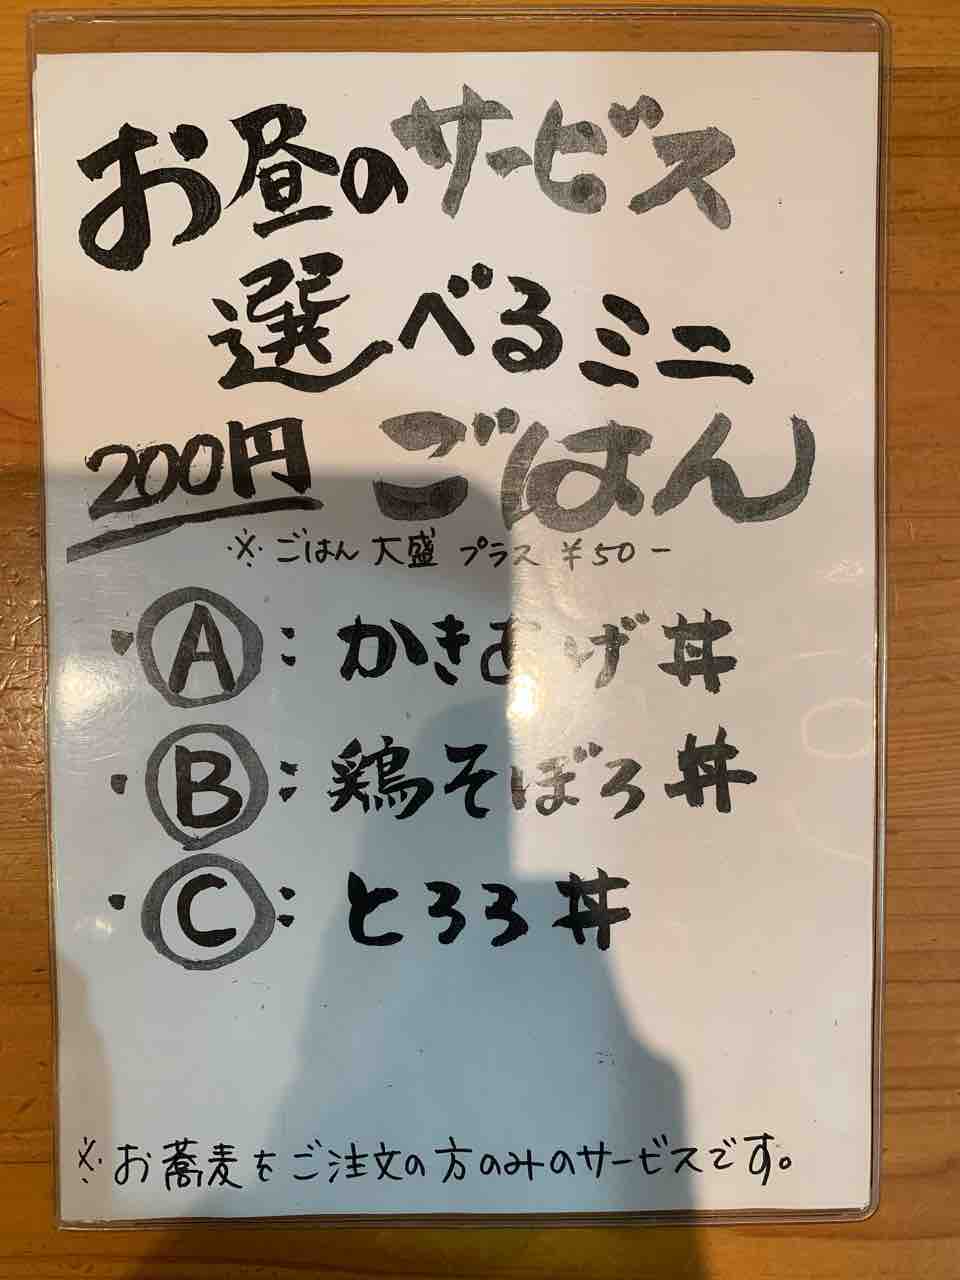 お昼のサービス
選べるミニ
200円 ごはん
※ごはん 大盛 プラス ¥50−
・Ⓐ：かきあげ丼
・Ⓑ：鶏そぼろ丼
・Ⓒ：とろろ丼
※お蕎麦をご注文の方のみのサービスです。